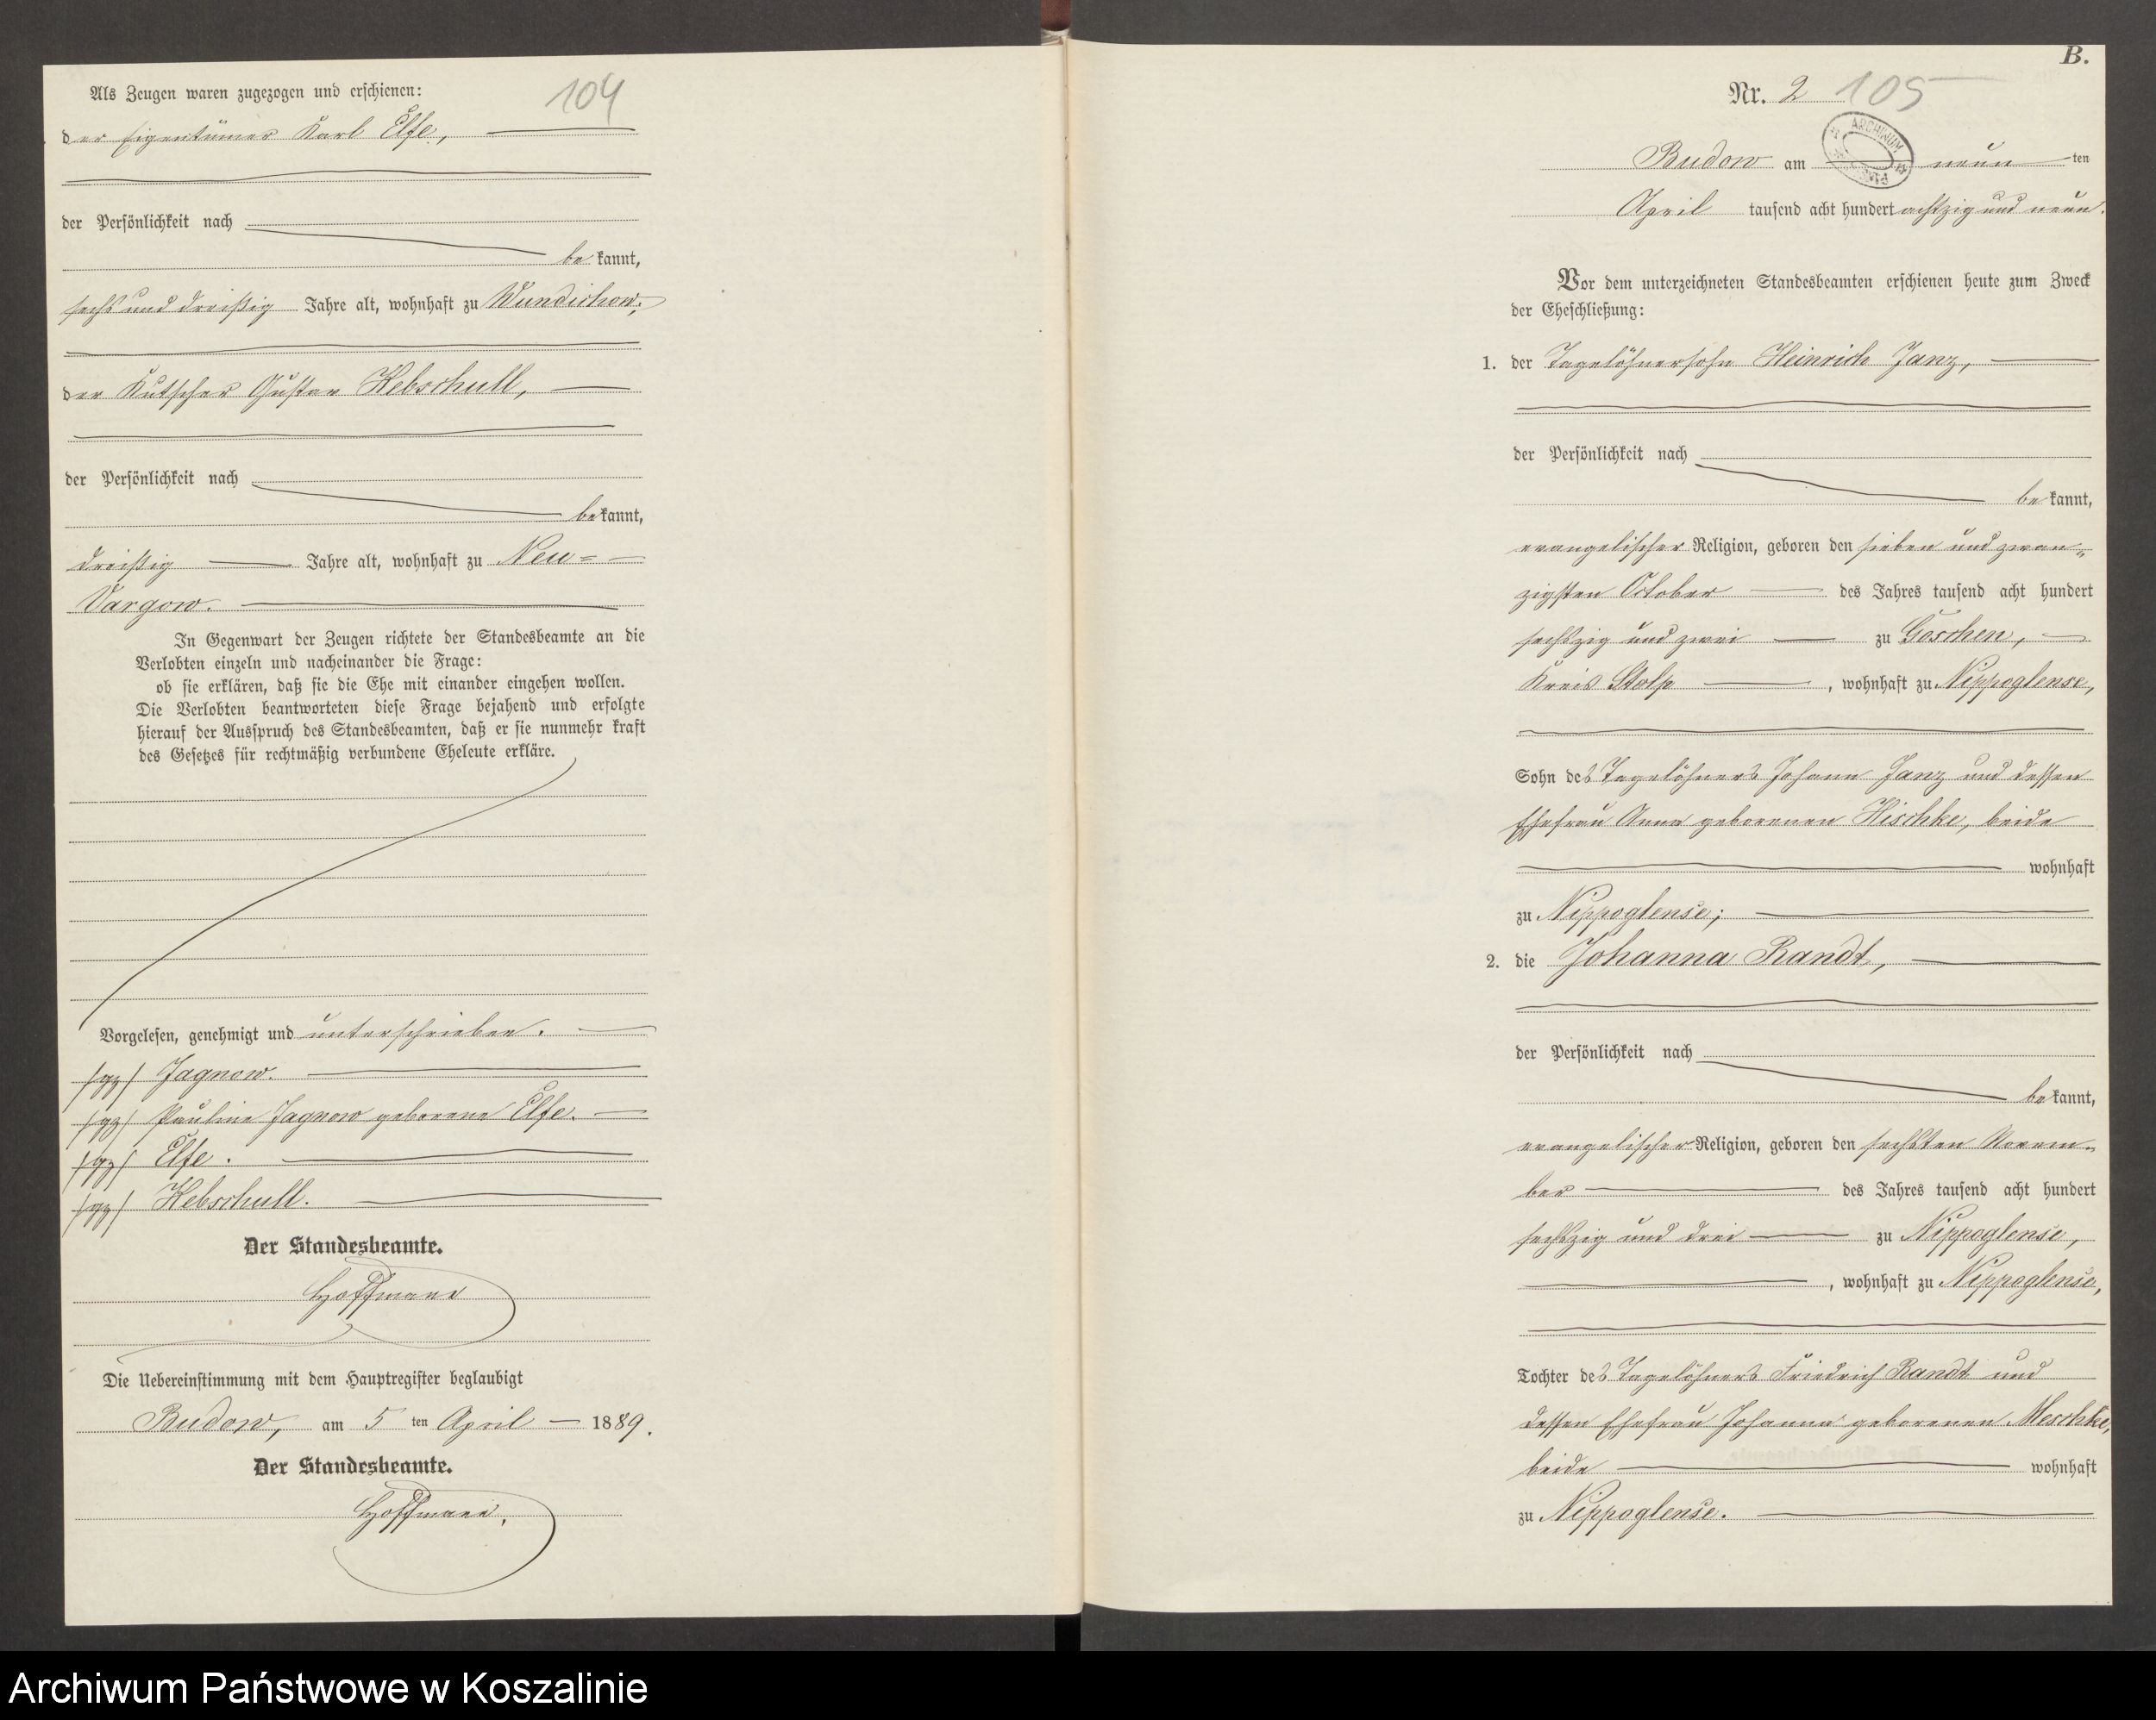 Als Zeugen waren zugezogen und erschienen:
104
der Eigentümer Karl Elfe,
der Persönlichkeit nach
be kannt,
sechs und dreißig Jahre alt, wohnhaft zu Wundichow;
der Kutscher Gustav Kebschull,
der Persönlichkeit nach
bekannt,
dreißig Jahre alt, wohnhaft zu Neu=
Vargow.
In Gegenwart der Zeugen richtete der Standesbeamte an die
Verlobten einzeln und nacheinander die Frage:
ob sie erklären, daß sie die Ehe mit einander eingehen wollen.
Die Verlobten beantworteten diese Frage bejahend und erfolgte
hierauf der Ausspruch des Standesbeamten, daß er sie nunmehr kraft
des Gesetzes für rechtmäßig verbundene Eheleute erkläre.
Vorgelesen, genehmigt und unterschrieben.
/gz/ Jagnow.
/gz/ Pauline Jagnow geborene Elfe.
/gz/ Elfe.
/gz/ Kebschull.
Der Standesbeamte.
Hoffmann
Die Uebereinstimmung mit dem Hauptregister beglaubigt
Budow, am 5 ten April 1889.
Der Standesbeamte.
Hoffmann.
B.
Nr. 2 105
ARCHIWUM
Budow am neun ten
April tausend acht hundert achtzig und neun.
Vor dem unterzeichneten Standesbeamten erschienen heute zum Zweck
der Eheschließung:
1. der Tagelöhnersohn Heinrich Janz,
der Persönlichkeit nach
be kannt,
evangelischer Religion, geboren den sieben und zwan-
zigsten October des Jahres tausend acht hundert
sechszig und zwei zu Goschen,
Kreis Stolp, wohnhaft zu Nippoglense,
Sohn des Tagelöhners Johann Janz und dessen
Ehefrau Anna geborenen Hischke, beide
wohnhaft
zu Nippoglense;
2. die Johanna Randt,
der Persönlichkeit nach
be kannt,
evangelischer Religion, geboren den sechsten Novem-
ber des Jahres tausend acht hundert
sechszig und drei zu Nippoglense,
, wohnhaft zu Nippoglense,
Tochter des Tagelöhners Friedrich Randt und
dessen Ehefrau Johanna geborenen Meschke,
beide wohnhaft
zu Nippoglense.
Archiwum Państwowe w Koszalinie